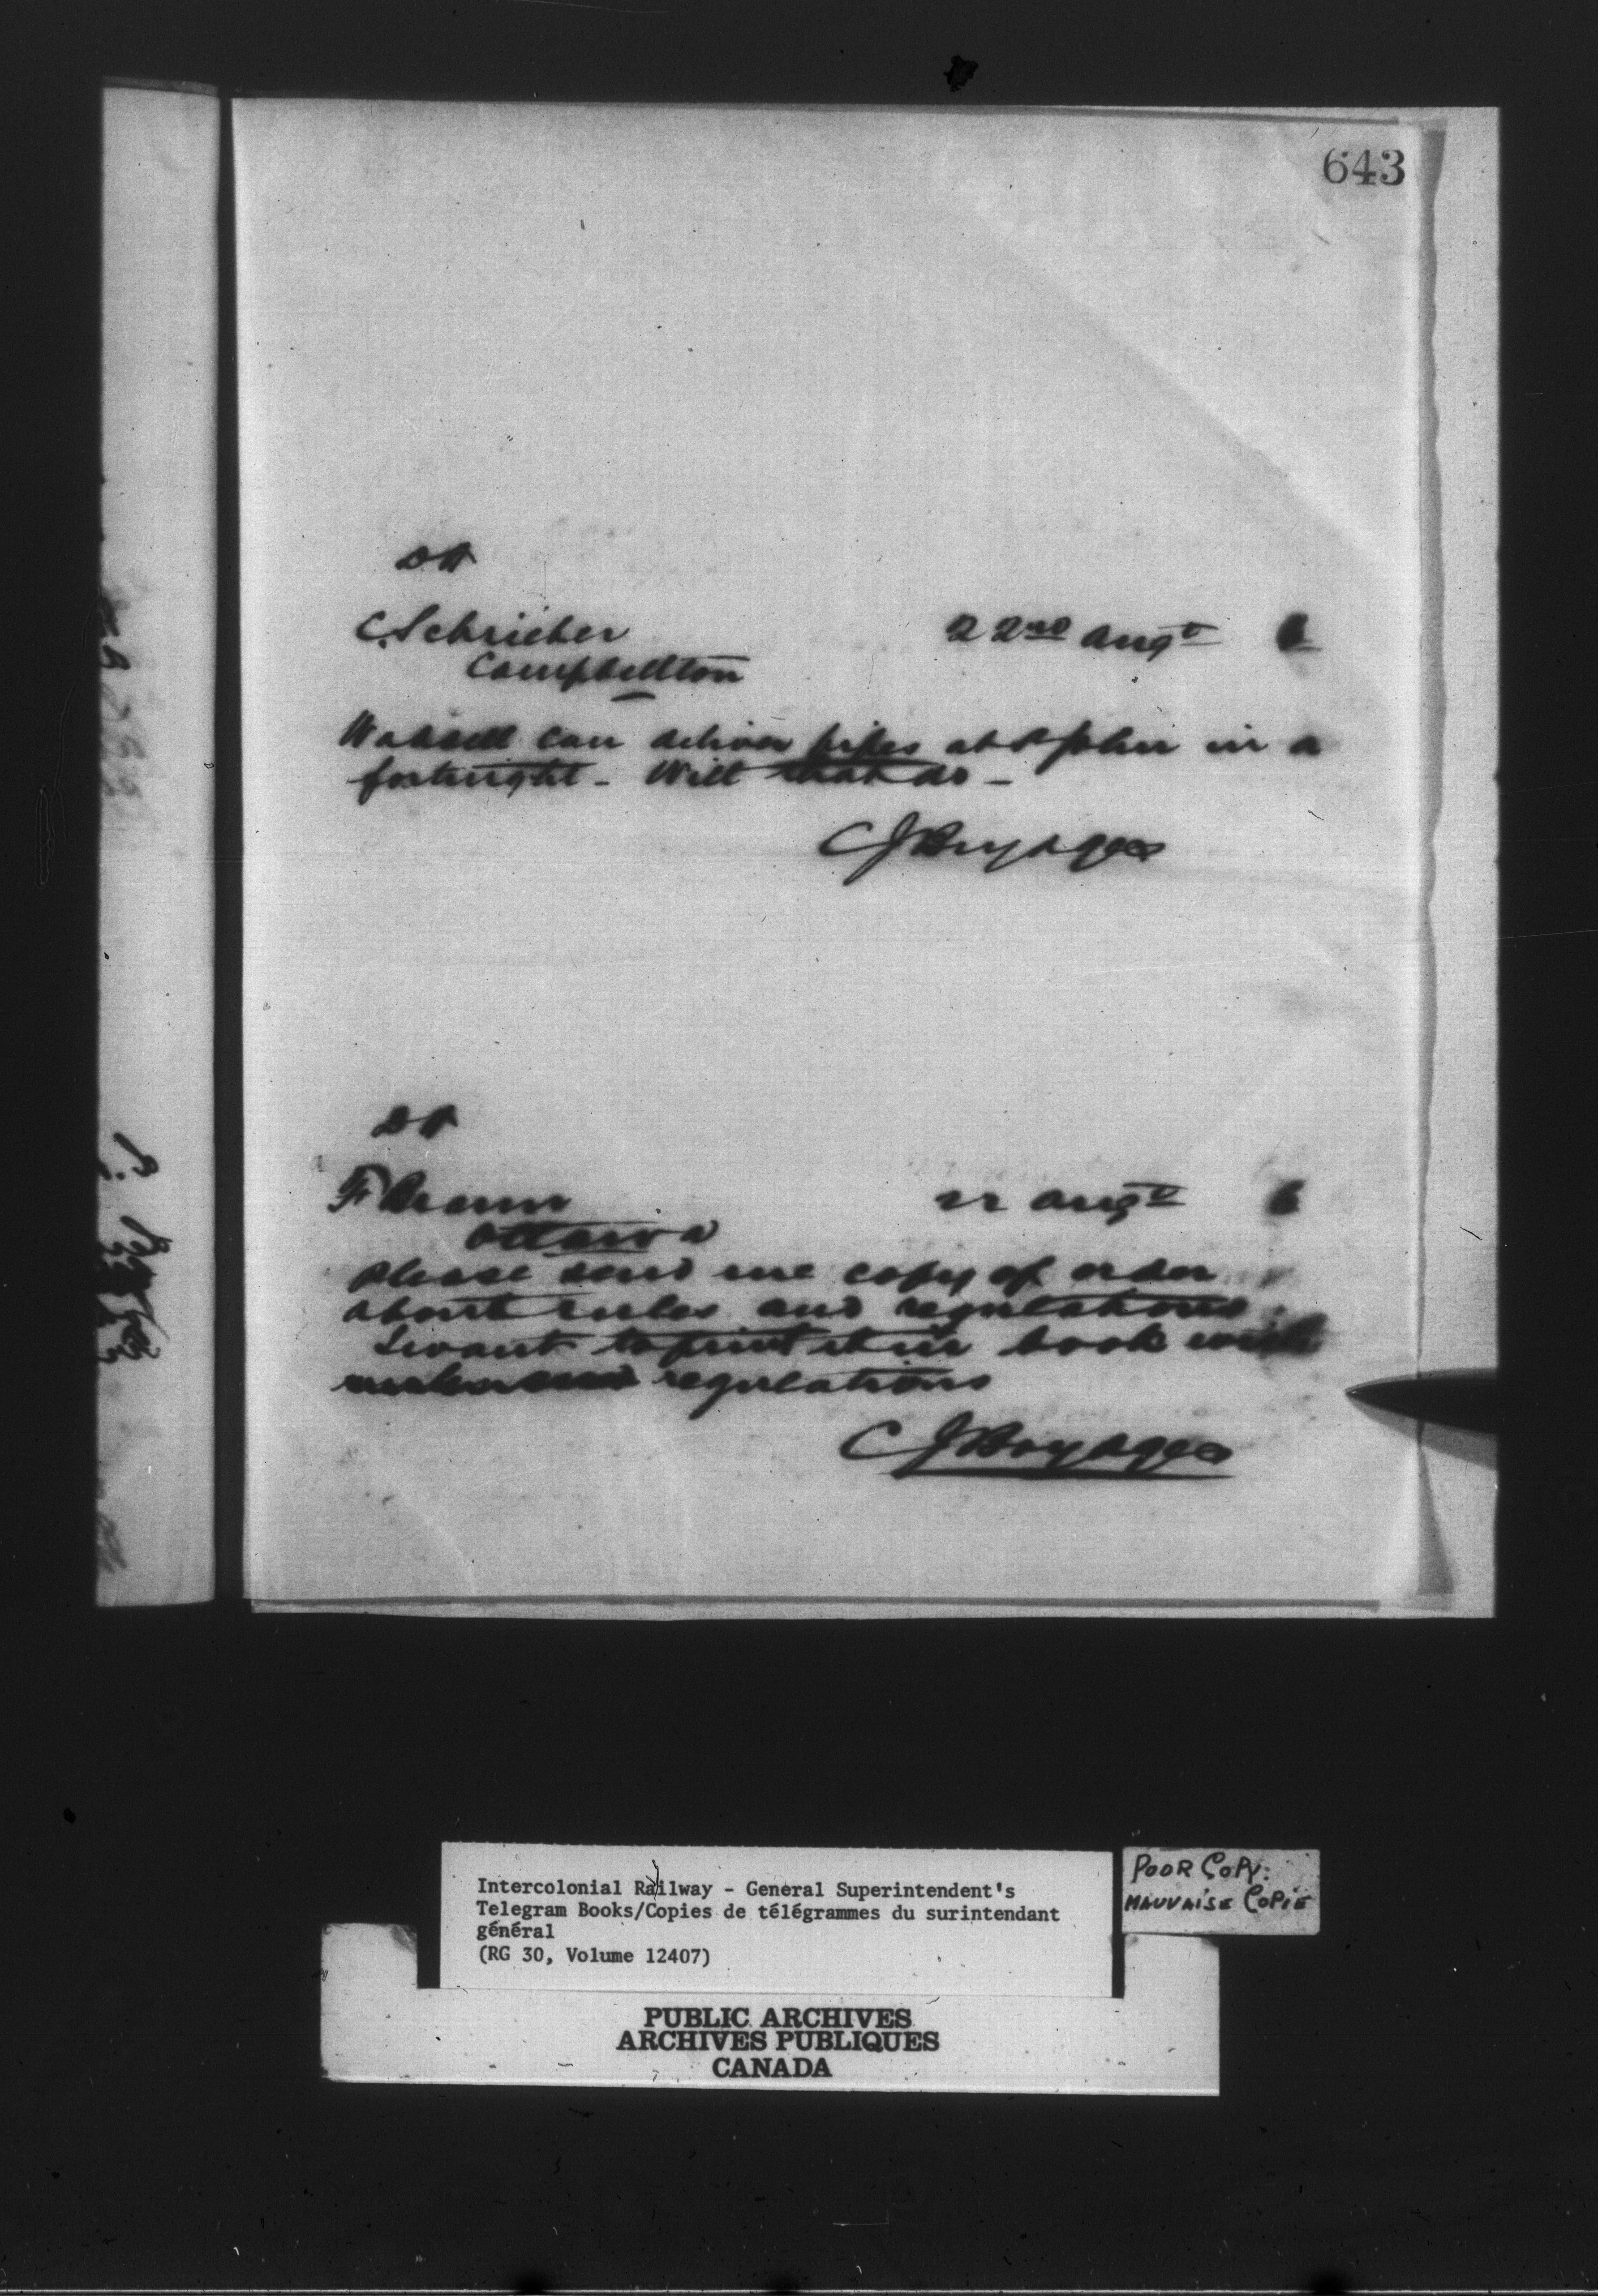 643
DR
C. Schrieber 22nd Augt 6
Campbellton
can deliver pipes at St John in a
fortnight - Will that do -
CJ Brydges
DR
F Braun 22 Augt 6
Ottawa
Please send me copy of order
about rules and regulations
I want to print it in book with
rules and regulations
CJ Brydges
Intercolonial Railway - General Superintendent's
Telegram Books/Copies de télégrammes du surintendant
général
(RG 30, Volume 12407)
POOR COPY:
MAUVAISE COPIE
PUBLIC ARCHIVES
ARCHIVES PUBLIQUES
CANADA